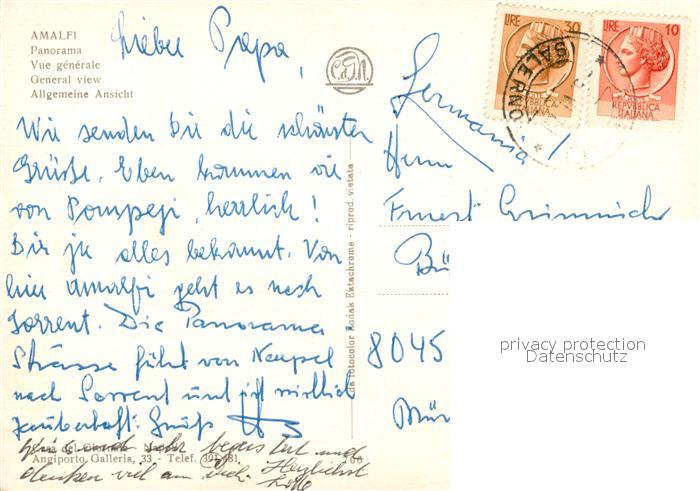 AMALFI
Panorama
Vue générale
General view
Allgemeine Ansicht
Lieber Papa,
C.d.N.
LIRE 30
REPVBBLICA
ITALIANA
LIRE 10
POSTE
REPVBBLICA
ITALIANA
SALERNO
Germania!
Herrn
Ernest
8045
privacy protection
Datenschutz
Wir senden Dir die schönsten
Grüße. Eben kommen wir
von Pompeji, herrlich!
Dir ja alles bekannt. Von
hier Amalfi geht es nach
Sorrent. Die Panorama
Strasse führt von Neapel
nach Sorrent und ist wirklich
zauberhaft. Gruß
sehr und
denken viel an Dich. Herzlichst
Angiporto Galleria, 33 - Telef. 391.481
da fotocolor Kodak Ektachrome - riprod. vietata